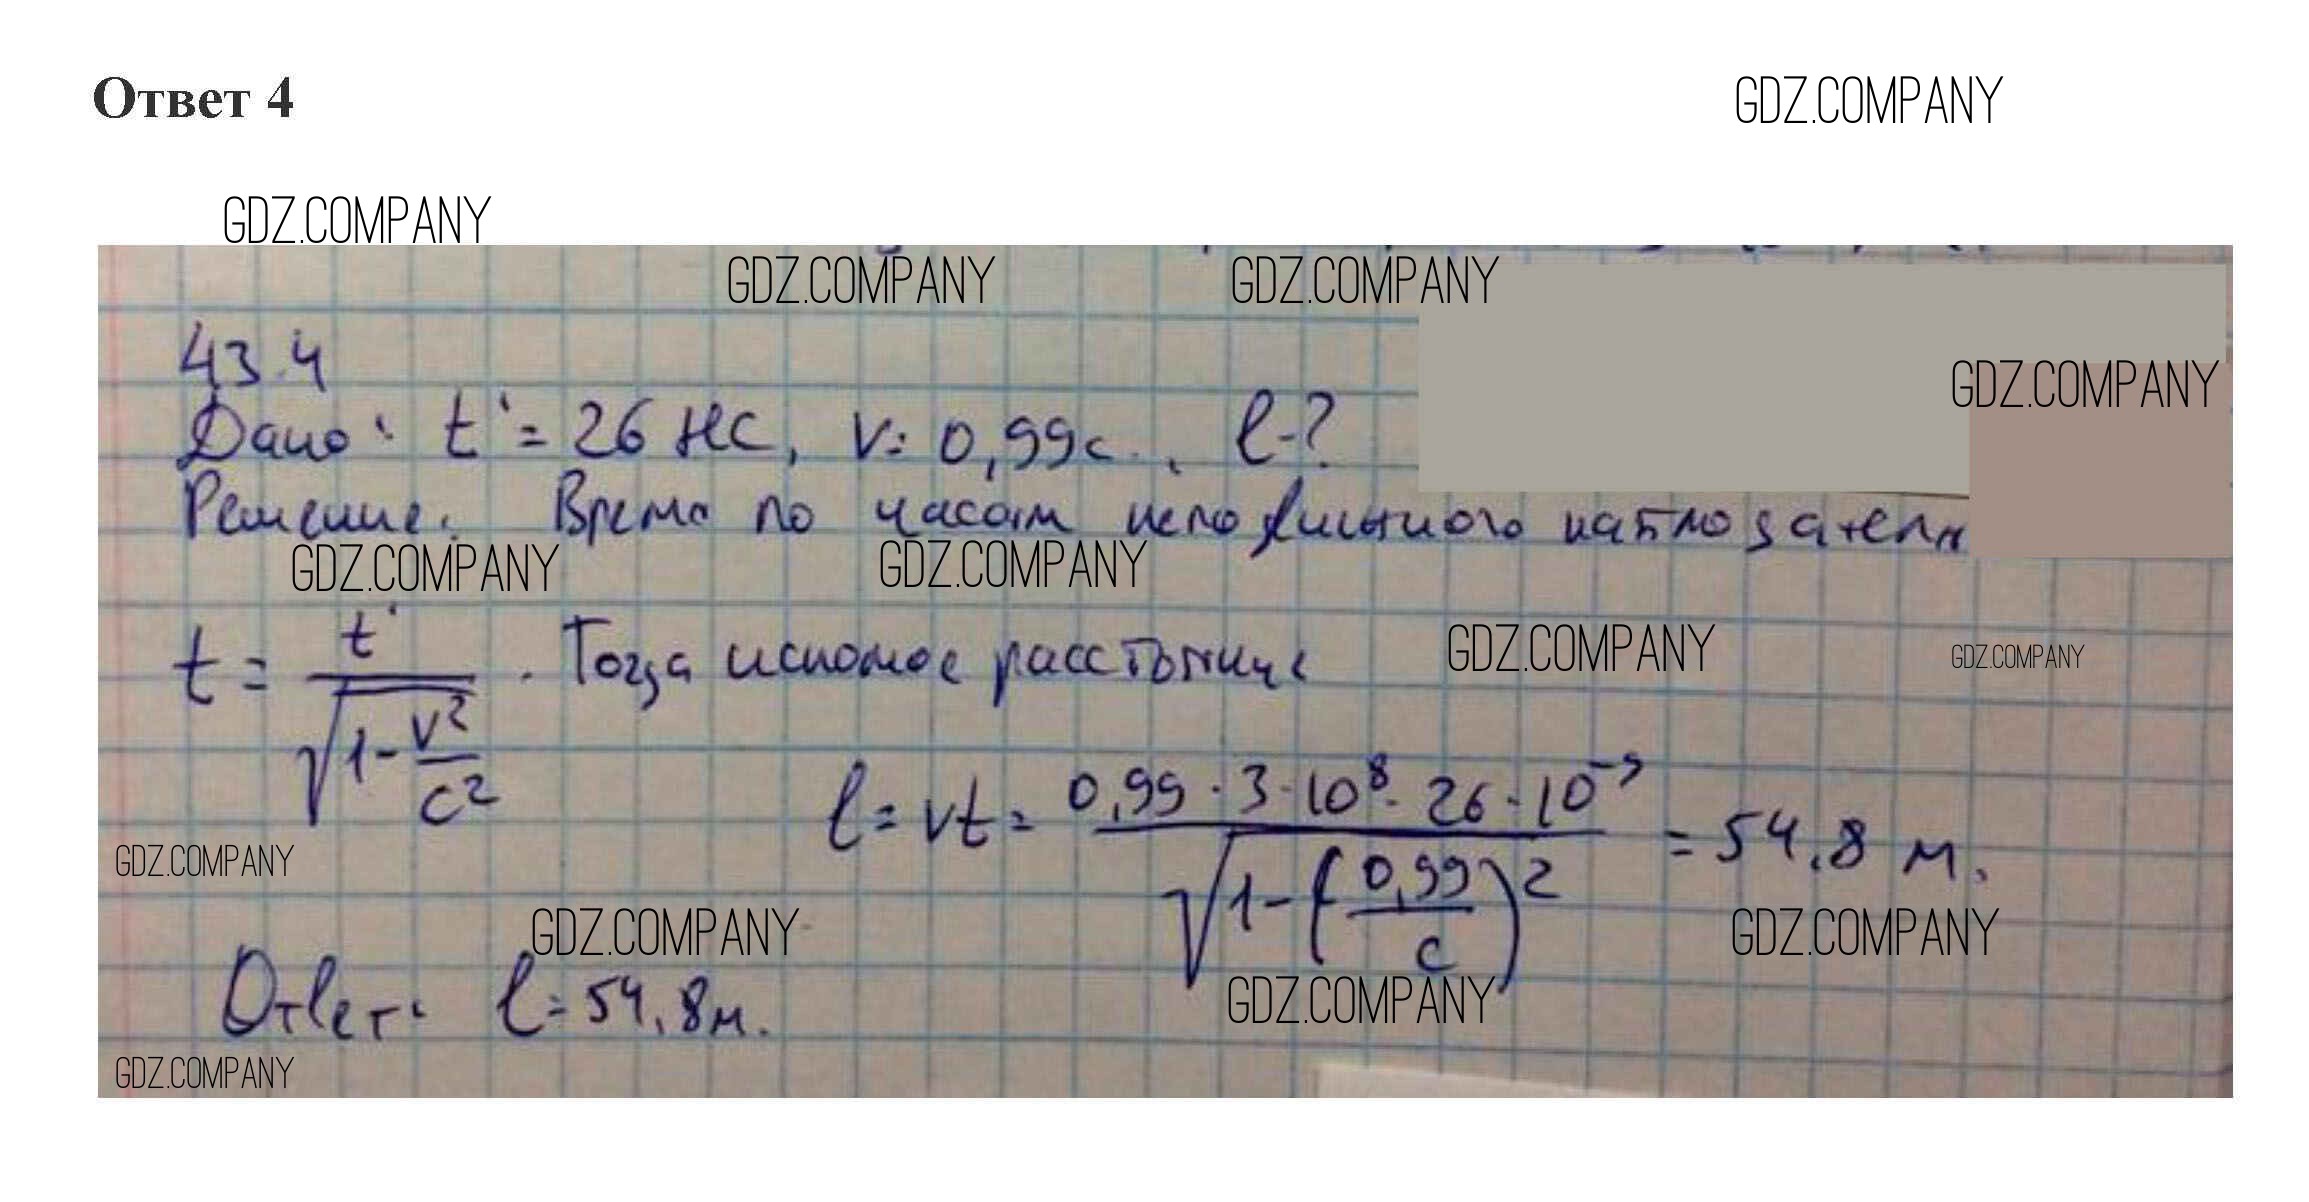 Ответ 4
GDZ.COMPANY
GDZ.COMPANY
GDZ.COMPANY GDZ.COMPANY
43.4
GDZ.COMPANY
Дано: t' = 26 нс, v = 0,99c. l-?
Решение. Время по часам неподвижного наблюдателя
GDZ.COMPANY GDZ.COMPANY
t = t' / √(1 - v²/c²) . Тогда искомое расстояние
GDZ.COMPANY GDZ.COMPANY
l = vt = 0,99 · 3 · 10⁸ · 26 · 10⁻⁹ / √(1 - (0,99/c)²) = 54,8 м.
GDZ.COMPANY
GDZ.COMPANY GDZ.COMPANY
Ответ: l = 54,8 м.
GDZ.COMPANY
GDZ.COMPANY